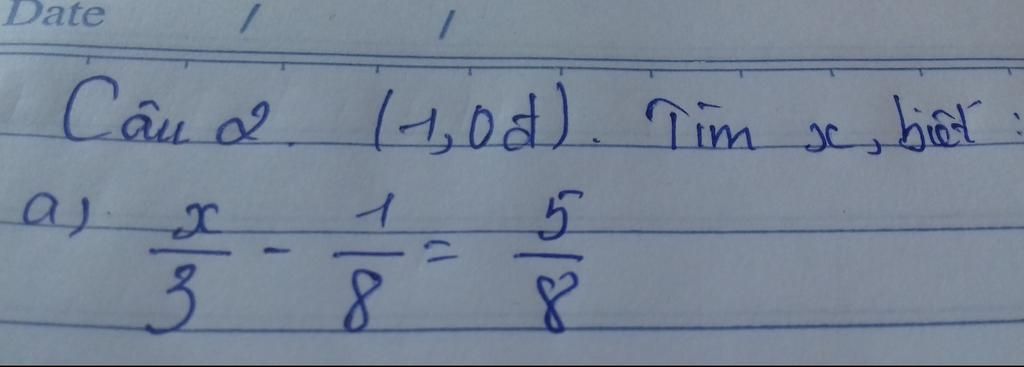 Date / /
Câu 2. (1,0đ). Tìm x, biết:
a) x/3 - 1/8 = 5/8